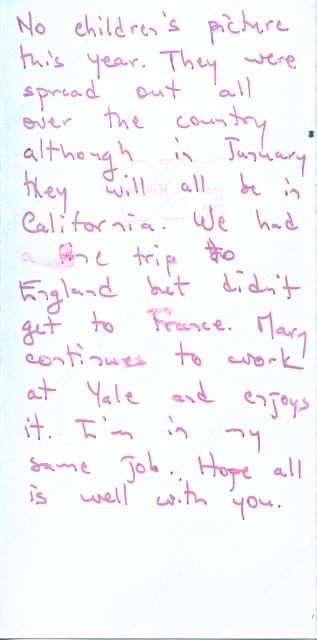 No children's picture
this year. They were
spread out all
over the country
although in January
they will all be in
California. We had
a fine trip to
England but didn't
get to France. Mary
continues to work
at Yale and enjoys
it. I'm in my
same job. Hope all
is well with you.